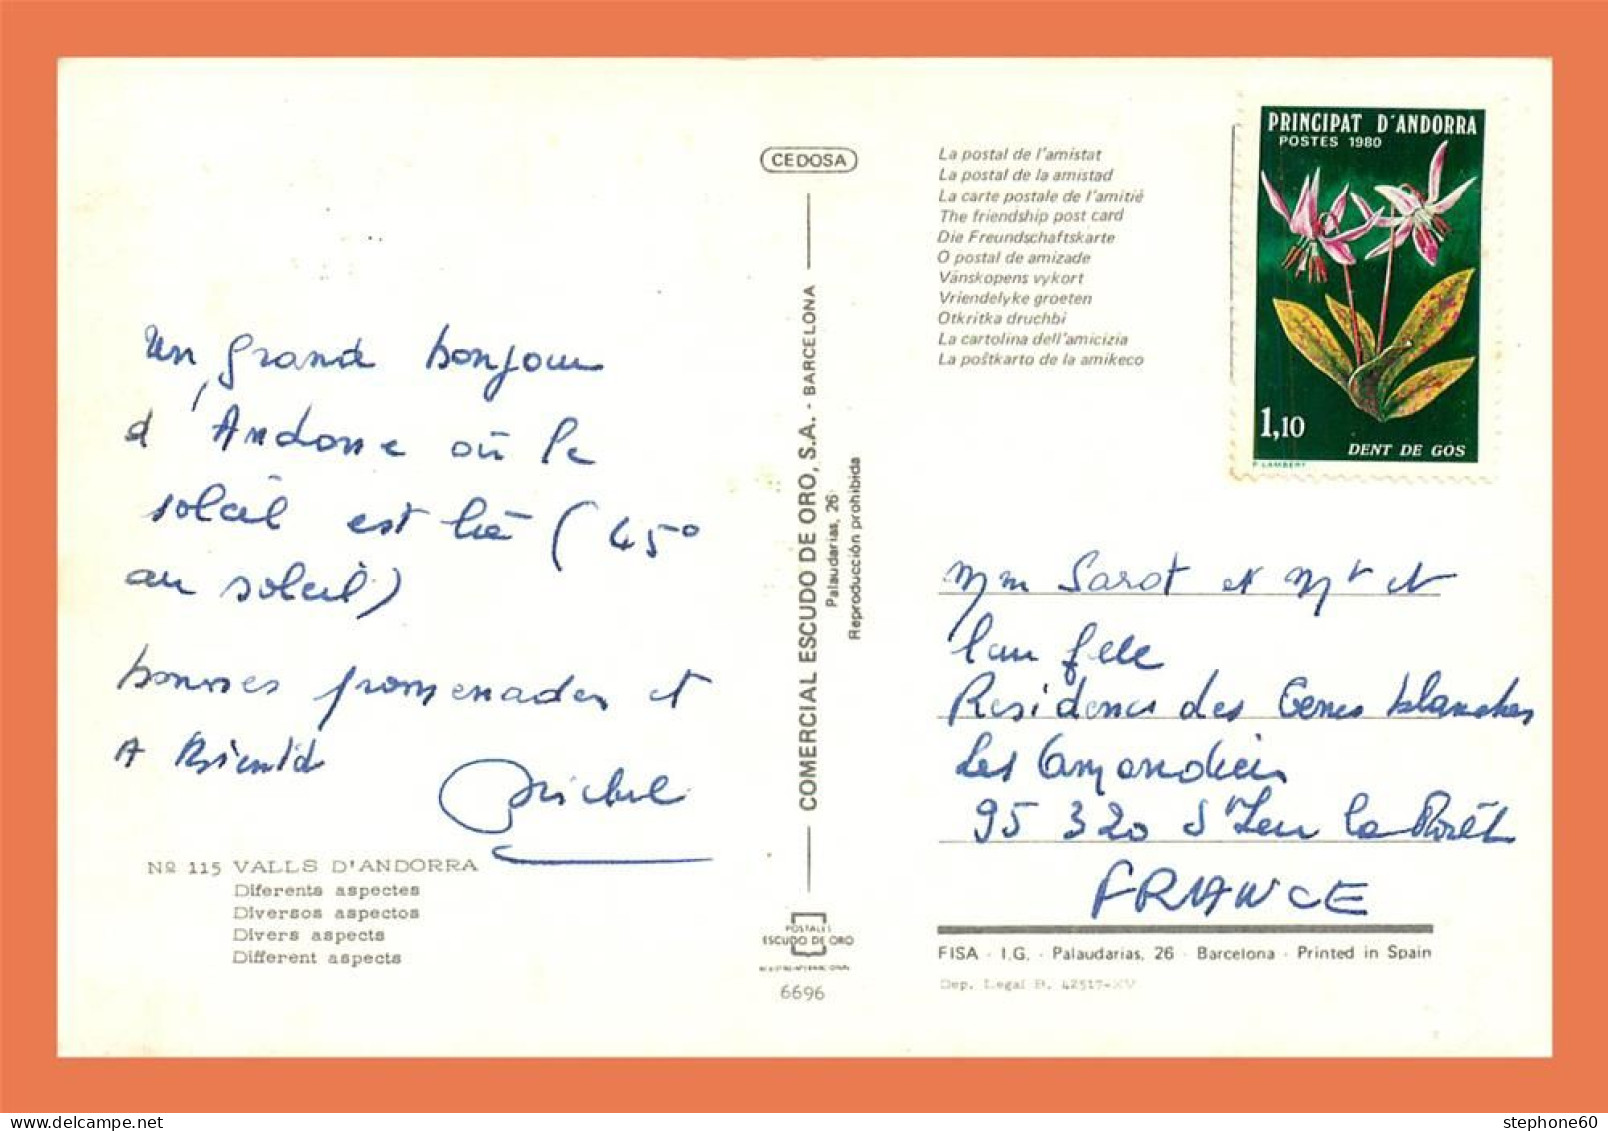 Un grand bonjour
d'Andorre où le
soleil est là (45°
au soleil)
bonnes promenades et
A Bientôt
Michel
Nº 115 VALLS D'ANDORRA
Diferents aspectes
Diversos aspectos
Divers aspects
Different aspects
CEDOSA
COMERCIAL ESCUDO DE ORO, S.A. - BARCELONA
Palaudarias, 26
Reproducción prohibida
POSTALES
ESCUDO DE ORO
6696
La postal de l'amistat
La postal de la amistad
La carte postale de l'amitié
The friendship post card
Die Freundschaftskarte
O postal de amizade
Vänskopens vykort
Vriendelyke groeten
Otkritka druchbi
La cartolina dell'amicizia
La poŝtkarto de la amikeco
PRINCIPAT D'ANDORRA
POSTES 1980
1,10
DENT DE GOS
P. LAMBERT
Mm Sarot et Mr et
Residence des Terres blanches
Les Amandiers
95 320 St Leu la Forêt
FRANCE
FISA - I.G. - Palaudarias, 26 - Barcelona - Printed in Spain
Dep. Legal B. 42517-XV
stephone60